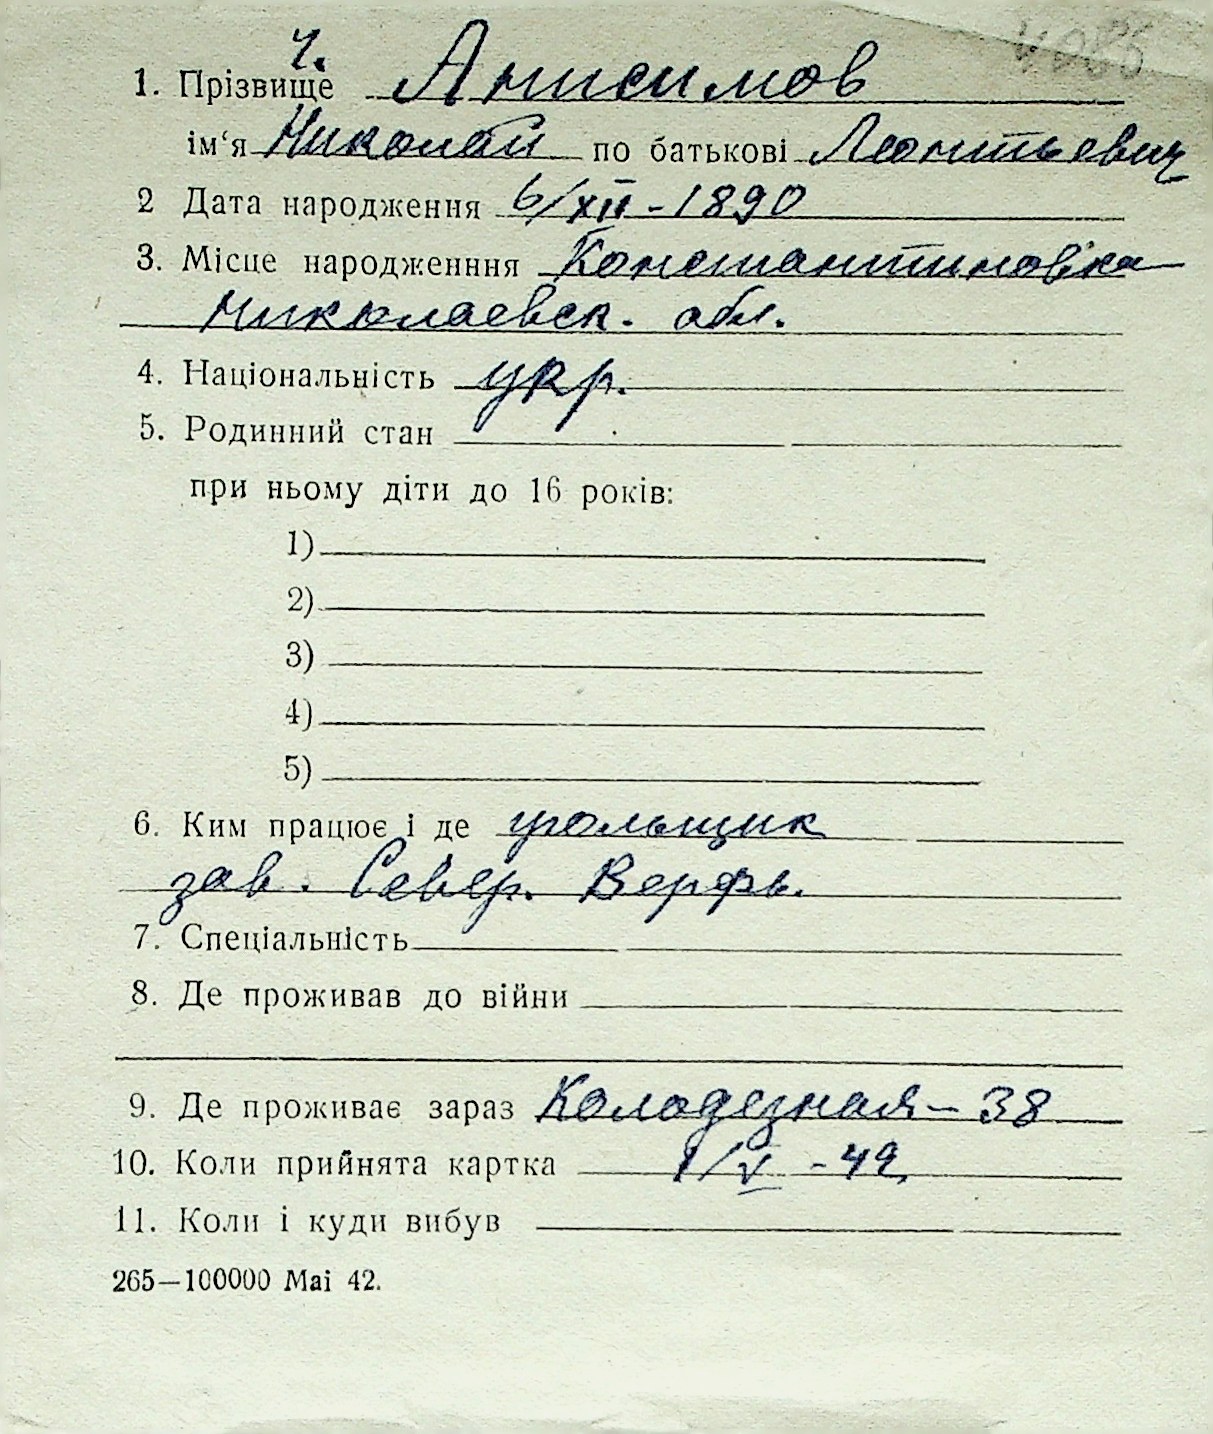 ч.
1. Прізвище Анисимов
ім‘я Николай по батькові Леонтьевич
2 Дата народження 6/XII - 1890
3. Місце народженння Константиновка
Николаевск. обл.
4. Національність укр.
5. Родинний стан
при ньому діти до 16 років:
1)
2)
3)
4)
5)
6. Ким працює і де угольщик
зав. Север. Верфь.
7. Спеціальність
8. Де проживав до війни
9. Де проживає зараз Колодезная - 38
10. Коли прийнята картка 1/V - 42
11. Коли і куди вибув
265—100000 Маі 42.